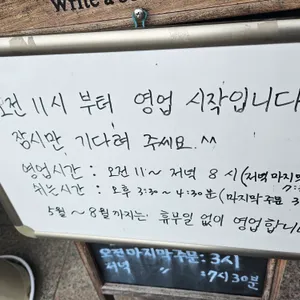 Write a
오전 11시 부터 영업 시작입니다
잠시만 기다려 주세요.^^
영업시간 : 오전 11~ 저녁 8시(저녁 마지막
쉬는시간 : 오후 3:30~4:30분(마지막 주문 3
5월~8월까지는 휴무일 없이 영업합니
오전마지막주문:3시
저녁 :7시30분